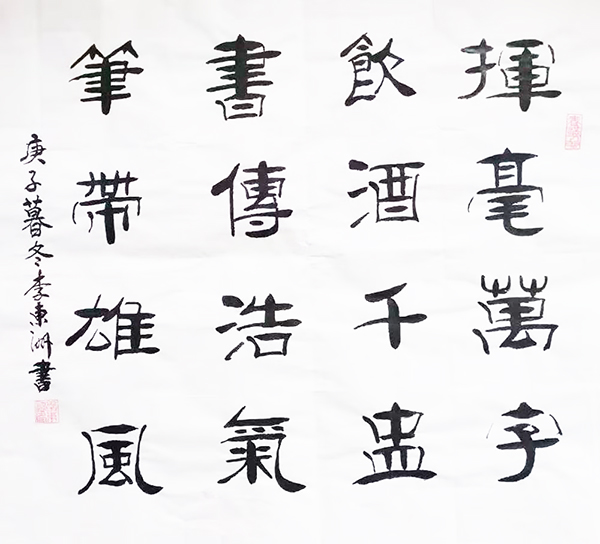 揮毫萬字
飲酒千盅
書傳浩氣
筆帶雄風
庚子暮冬李東洲書